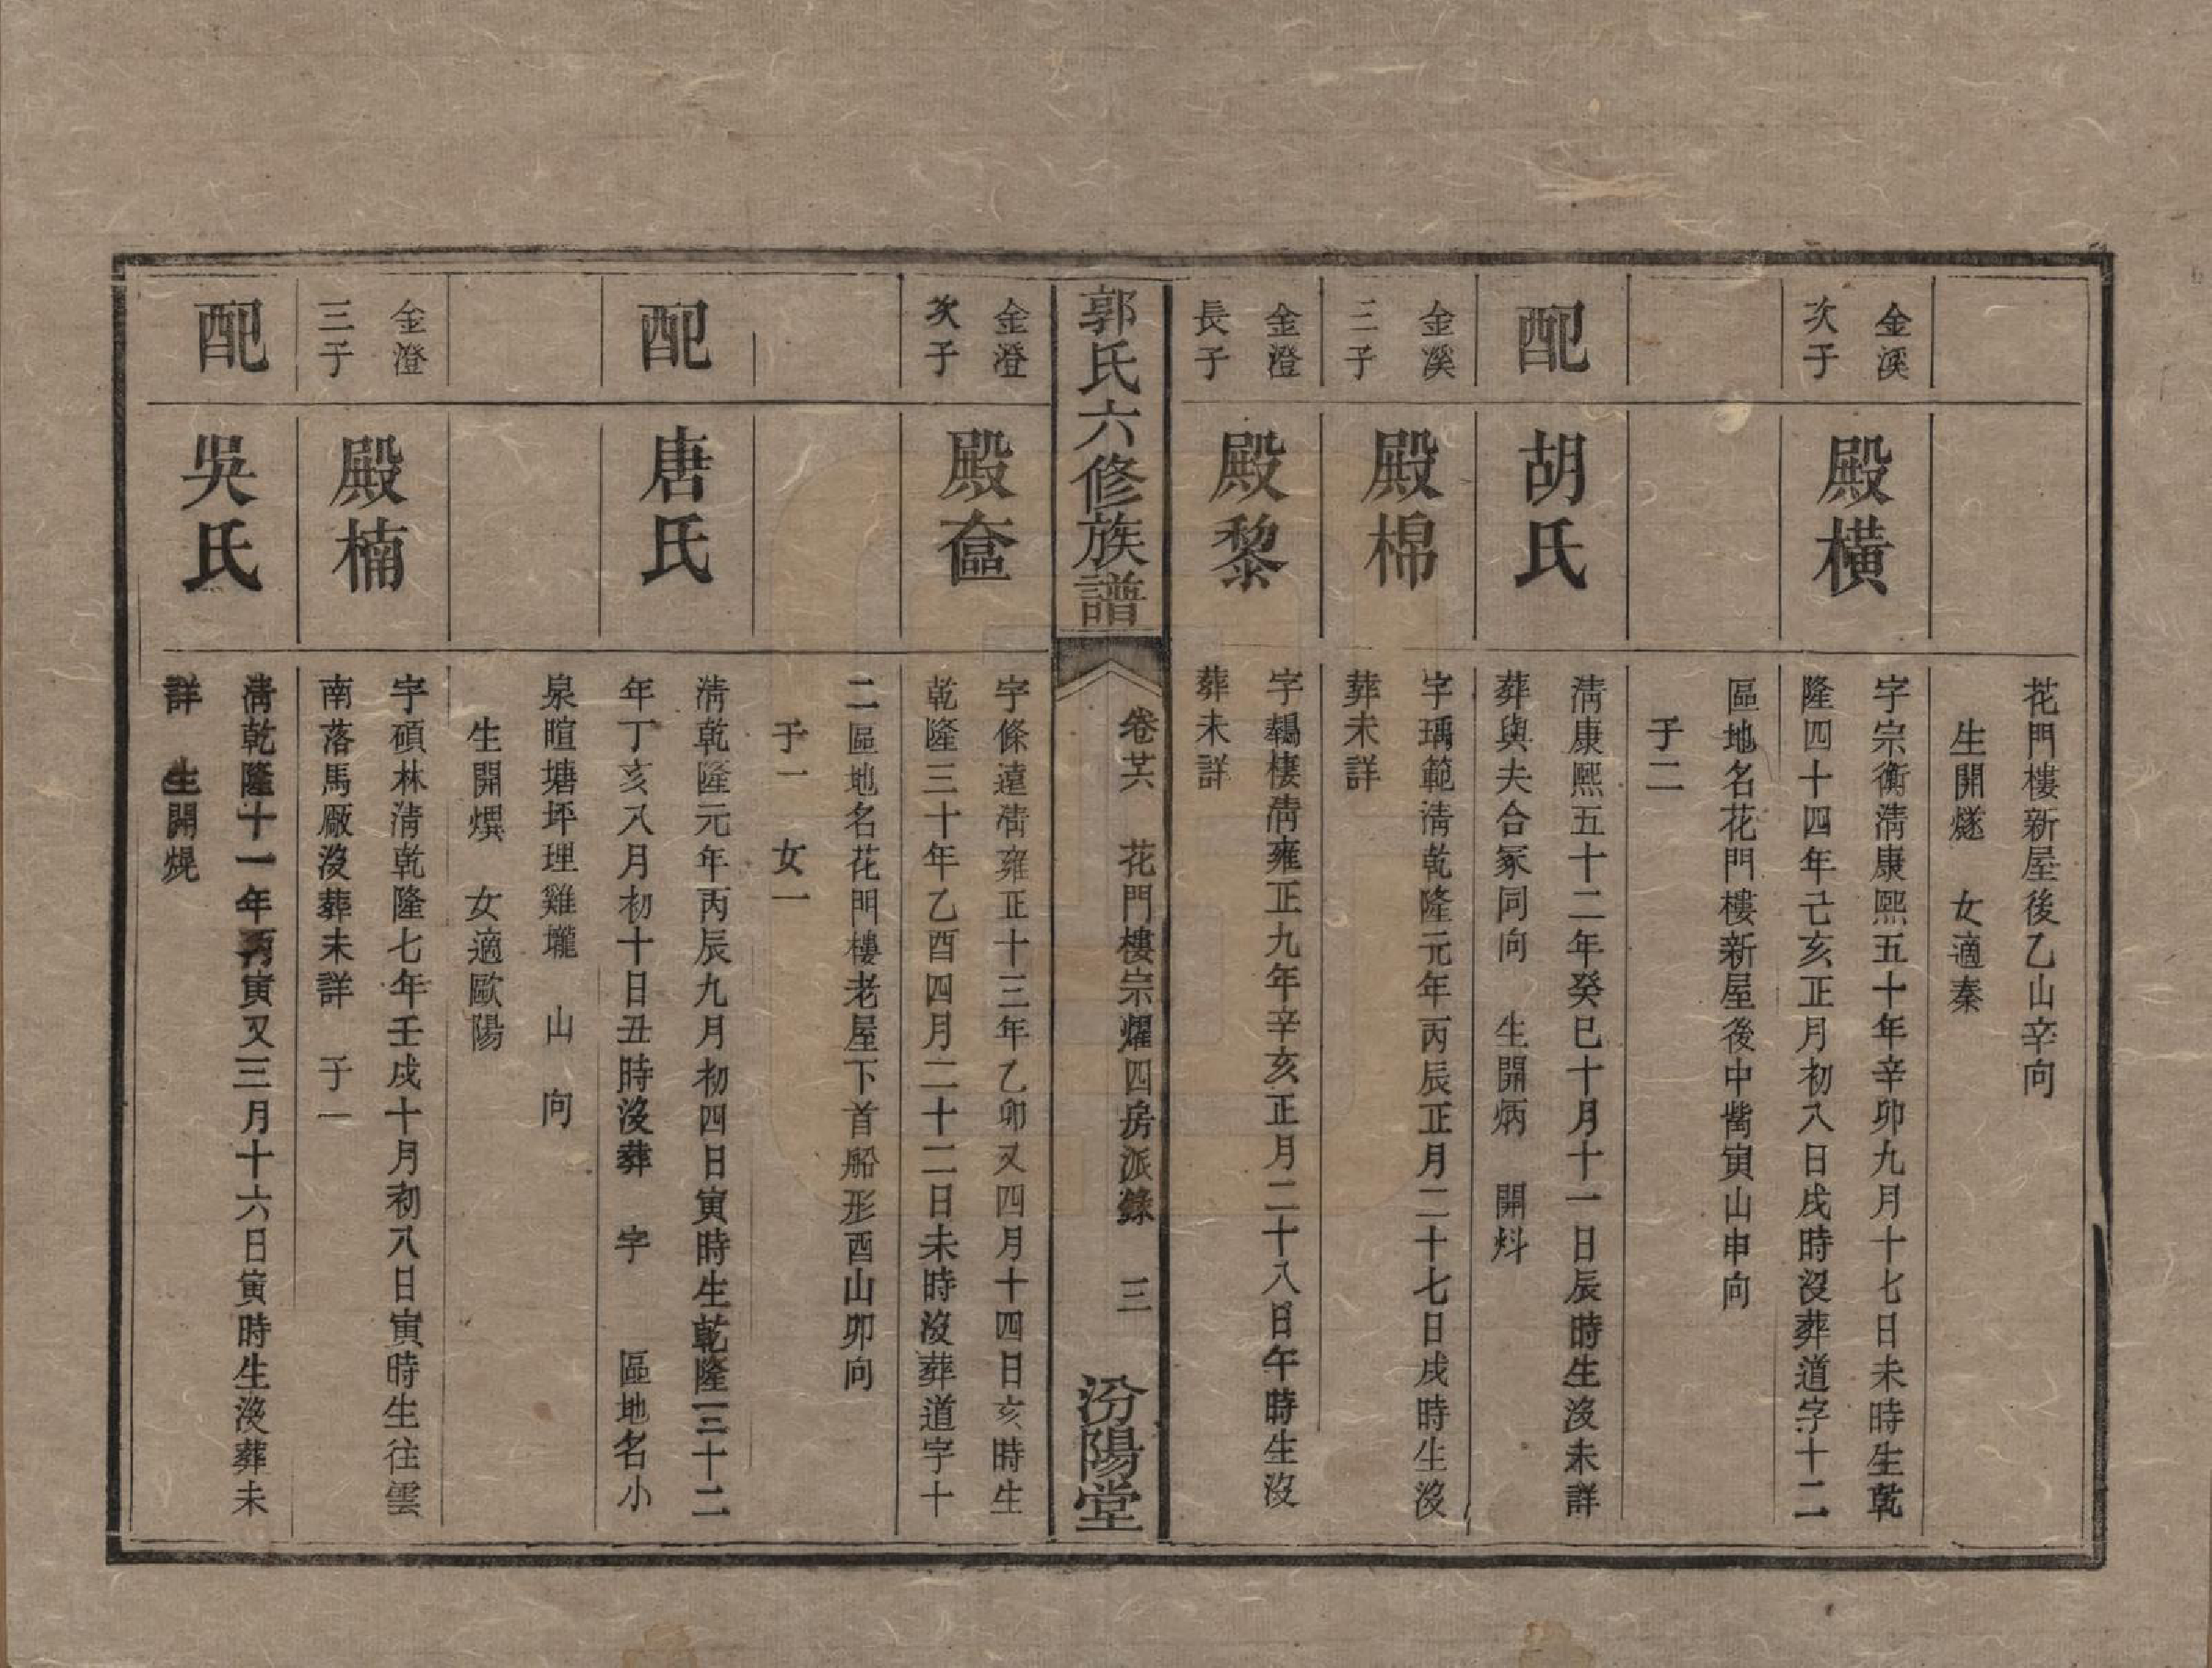 花門樓新屋後乙山辛向
生開燧　女適秦
金溪
次子
殿橫
字宗衡淸康熙五十年辛卯九月十七日未時生乾
隆四十四年己亥正月初八日戌時沒葬道字十二
區地名花門樓新屋後中嘴寅山申向
子二
配
胡氏
淸康熙五十二年癸巳十月十一日辰時生沒未詳
葬與夫合冢同向　生開炳　開炓
金溪
三子
殿棉
字瑀範淸乾隆元年丙辰正月二十七日戌時生沒
葬未詳
金澄
長子
殿黎
字鶡棲淸雍正九年辛亥正月二十八日午時生沒
葬未詳
郭氏六修族譜
卷廿六　花門樓宗燿四房派錄　三
汾陽堂
金澄
次子
殿奩
字條遠淸雍正十三年乙卯又四月十四日亥時生
乾隆三十年乙酉四月二十二日未時沒葬道字十
二區地名花門樓老屋下首船形酉山卯向
子一　女一
配
唐氏
淸乾隆元年丙辰九月初四日寅時生乾隆三十二
年丁亥八月初十日丑時沒葬　字　　區地名小
泉暄塘坪理雞壠　山　向
生開熼　女適歐陽
金澄
三子
殿楠
字碩林淸乾隆七年壬戌十月初八日寅時生往雲
南落馬廠沒葬未詳　子一
配
吳氏
淸乾隆十一年丙寅又三月十六日寅時生沒葬未
詳　生開焜